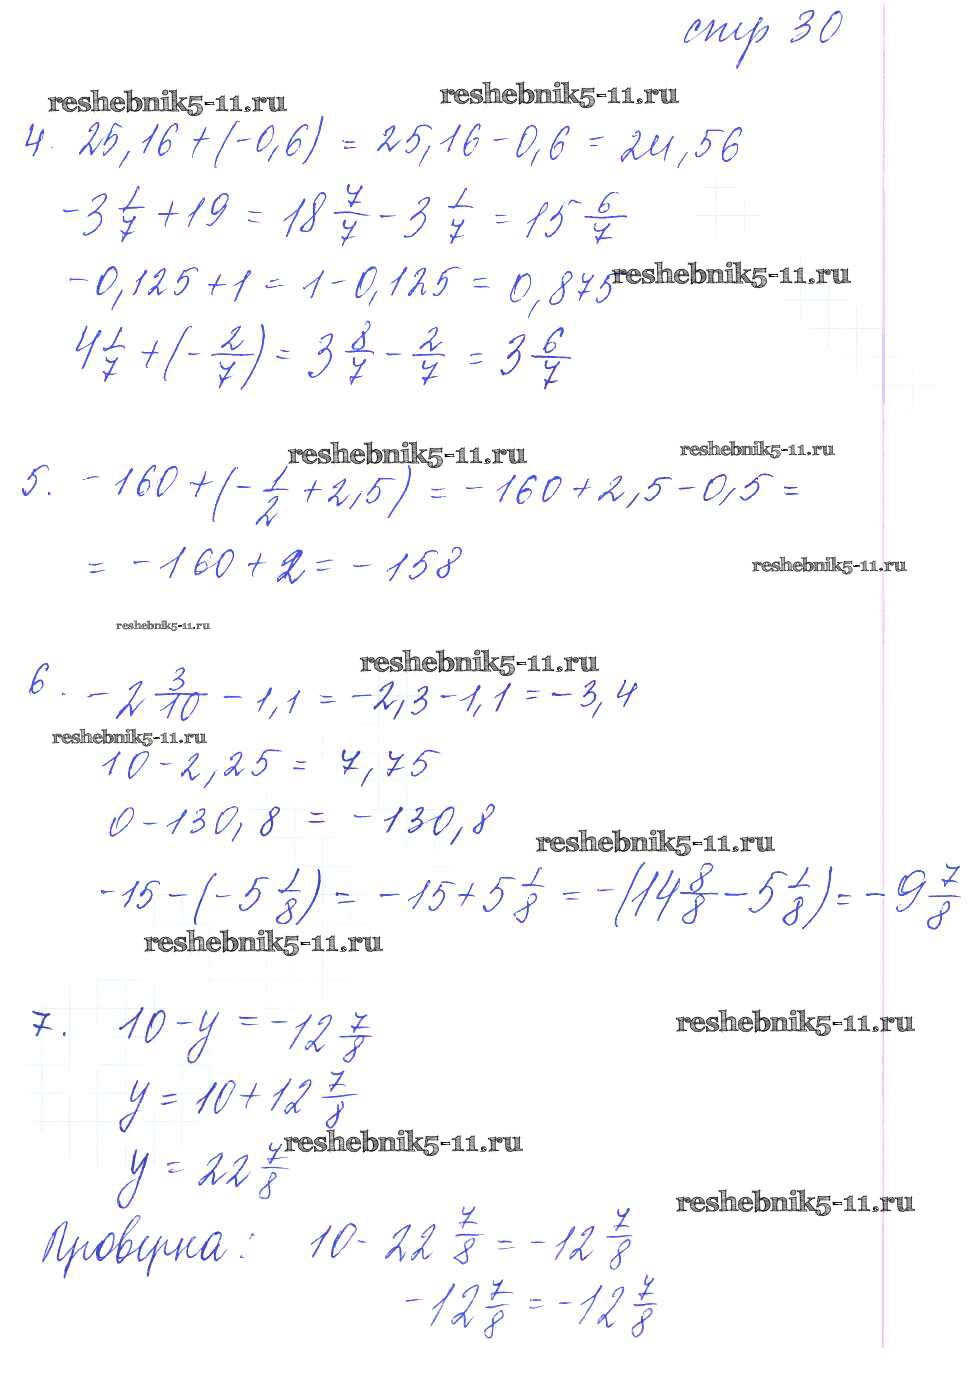 стр 30
reshebnik5-11.ru
reshebnik5-11.ru
4. 25,16 + (-0,6) = 25,16 - 0,6 = 24,56
-3 1/7 + 19 = 18 7/7 - 3 1/7 = 15 6/7
-0,125 + 1 = 1 - 0,125 = 0,875
reshebnik5-11.ru
4 1/7 + (- 2/7) = 3 8/7 - 2/7 = 3 6/7
reshebnik5-11.ru
reshebnik5-11.ru
5. -160 + (- 1/2 + 2,5) = -160 + 2,5 - 0,5 =
= -160 + 2 = -158
reshebnik5-11.ru
reshebnik5-11.ru
reshebnik5-11.ru
6. -2 3/10 - 1,1 = -2,3 - 1,1 = -3,4
reshebnik5-11.ru
10 - 2,25 = 7,75
0 - 130,8 = -130,8
reshebnik5-11.ru
-15 - (-5 1/8) = -15 + 5 1/8 = -(14 8/8 - 5 1/8) = -9 7/8
reshebnik5-11.ru
7. 10 - y = -12 7/8
reshebnik5-11.ru
y = 10 + 12 7/8
reshebnik5-11.ru
y = 22 7/8
reshebnik5-11.ru
Проверка: 10 - 22 7/8 = -12 7/8
-12 7/8 = -12 7/8